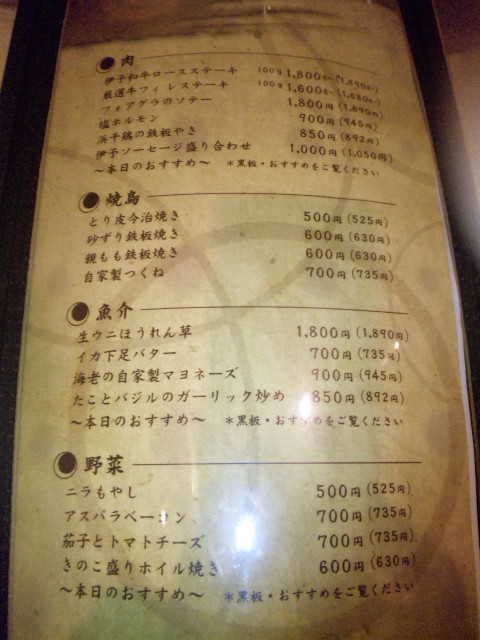 肉
伊予和牛ロースステーキ 100g 1,800円〜(1,890円〜)
厳選牛フィレステーキ 100g 1,600円〜(1,680円〜)
フォアグラのソテー 1,800円(1,890円)
塩ホルモン 900円(945円)
浜千鶏の鉄板やき 850円(892円)
伊予ソーセージ盛り合わせ 1,000円(1,050円)
〜本日のおすすめ〜 *黒板・おすすめをご覧ください
焼鳥
とり皮今治焼き 500円(525円)
砂ずり鉄板焼き 600円(630円)
親もも鉄板焼き 600円(630円)
自家製つくね 700円(735円)
魚介
生ウニほうれん草 1,800円(1,890円)
イカ下足バター 700円(735円)
海老の自家製マヨネーズ 900円(945円)
たことバジルのガーリック炒め 850円(892円)
〜本日のおすすめ〜 *黒板・おすすめをご覧ください
野菜
ニラもやし 500円(525円)
アスパラベーコン 700円(735円)
茄子とトマトチーズ 700円(735円)
きのこ盛りホイル焼き 600円(630円)
〜本日のおすすめ〜 *黒板・おすすめをご覧ください